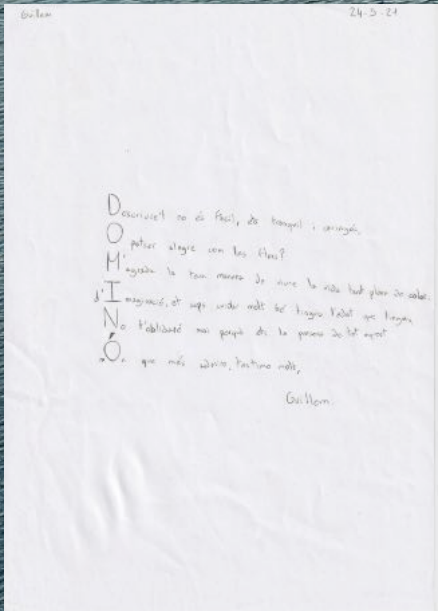 Guillem 24-5-21
Descriure't no és fàcil, ets tranquil i carinyós,
O potser alegre com les flors?
M'agrada la teva manera de viure la vida tant plena de color.
d'Imaginació, et cuido molt bé tinguis l'edat que tinguis
No t'oblidaré mai perquè ets la persona de tot aquest
mÓn que més admiro, t'estimo molt,
Guillem.